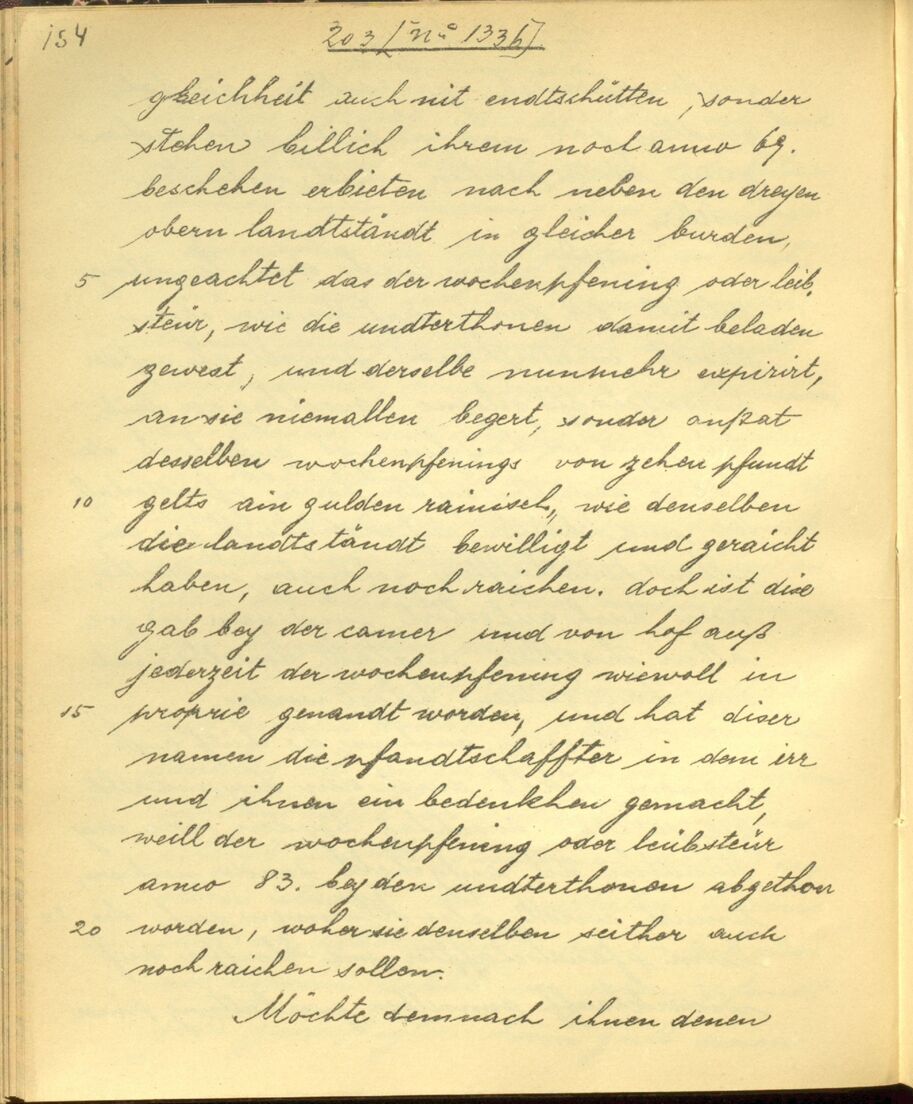 154
203 [No 1336]
gleichheit auch nit endtschütten, sonder
stehen billich ihrem noch anno 69.
beschehen erbieten nach neben den dreyen
obern landtständt in gleicher burden,
5 ungeachtet das der wochenpfening oder leib
steür, wie die undterthonen damit beladen
gewest, und derselbe nunmehr expirirt,
an sie niemallen begert, sonder anßat
desselben wochenpfenings von zehen pfundt
10 gelts ain gulden rainisch, wie denselben
die landtständt bewilligt und geraicht
haben, auch noch raichen. doch ist dise
gab bey der camer und von hof auß
jederzeit der wochenpfening wiewoll in
15 proprie genandt worden, und hat diser
namen die pfandtschaffter in dem irr
und ihnen ein bedenkhen gemacht,
weill der wochenpfening oder leübsteür
anno 83. bey den undterthonen abgethon
20 worden, woher sie denselben seither auch
noch raichen sollen.
Möchte demnach ihnen denen